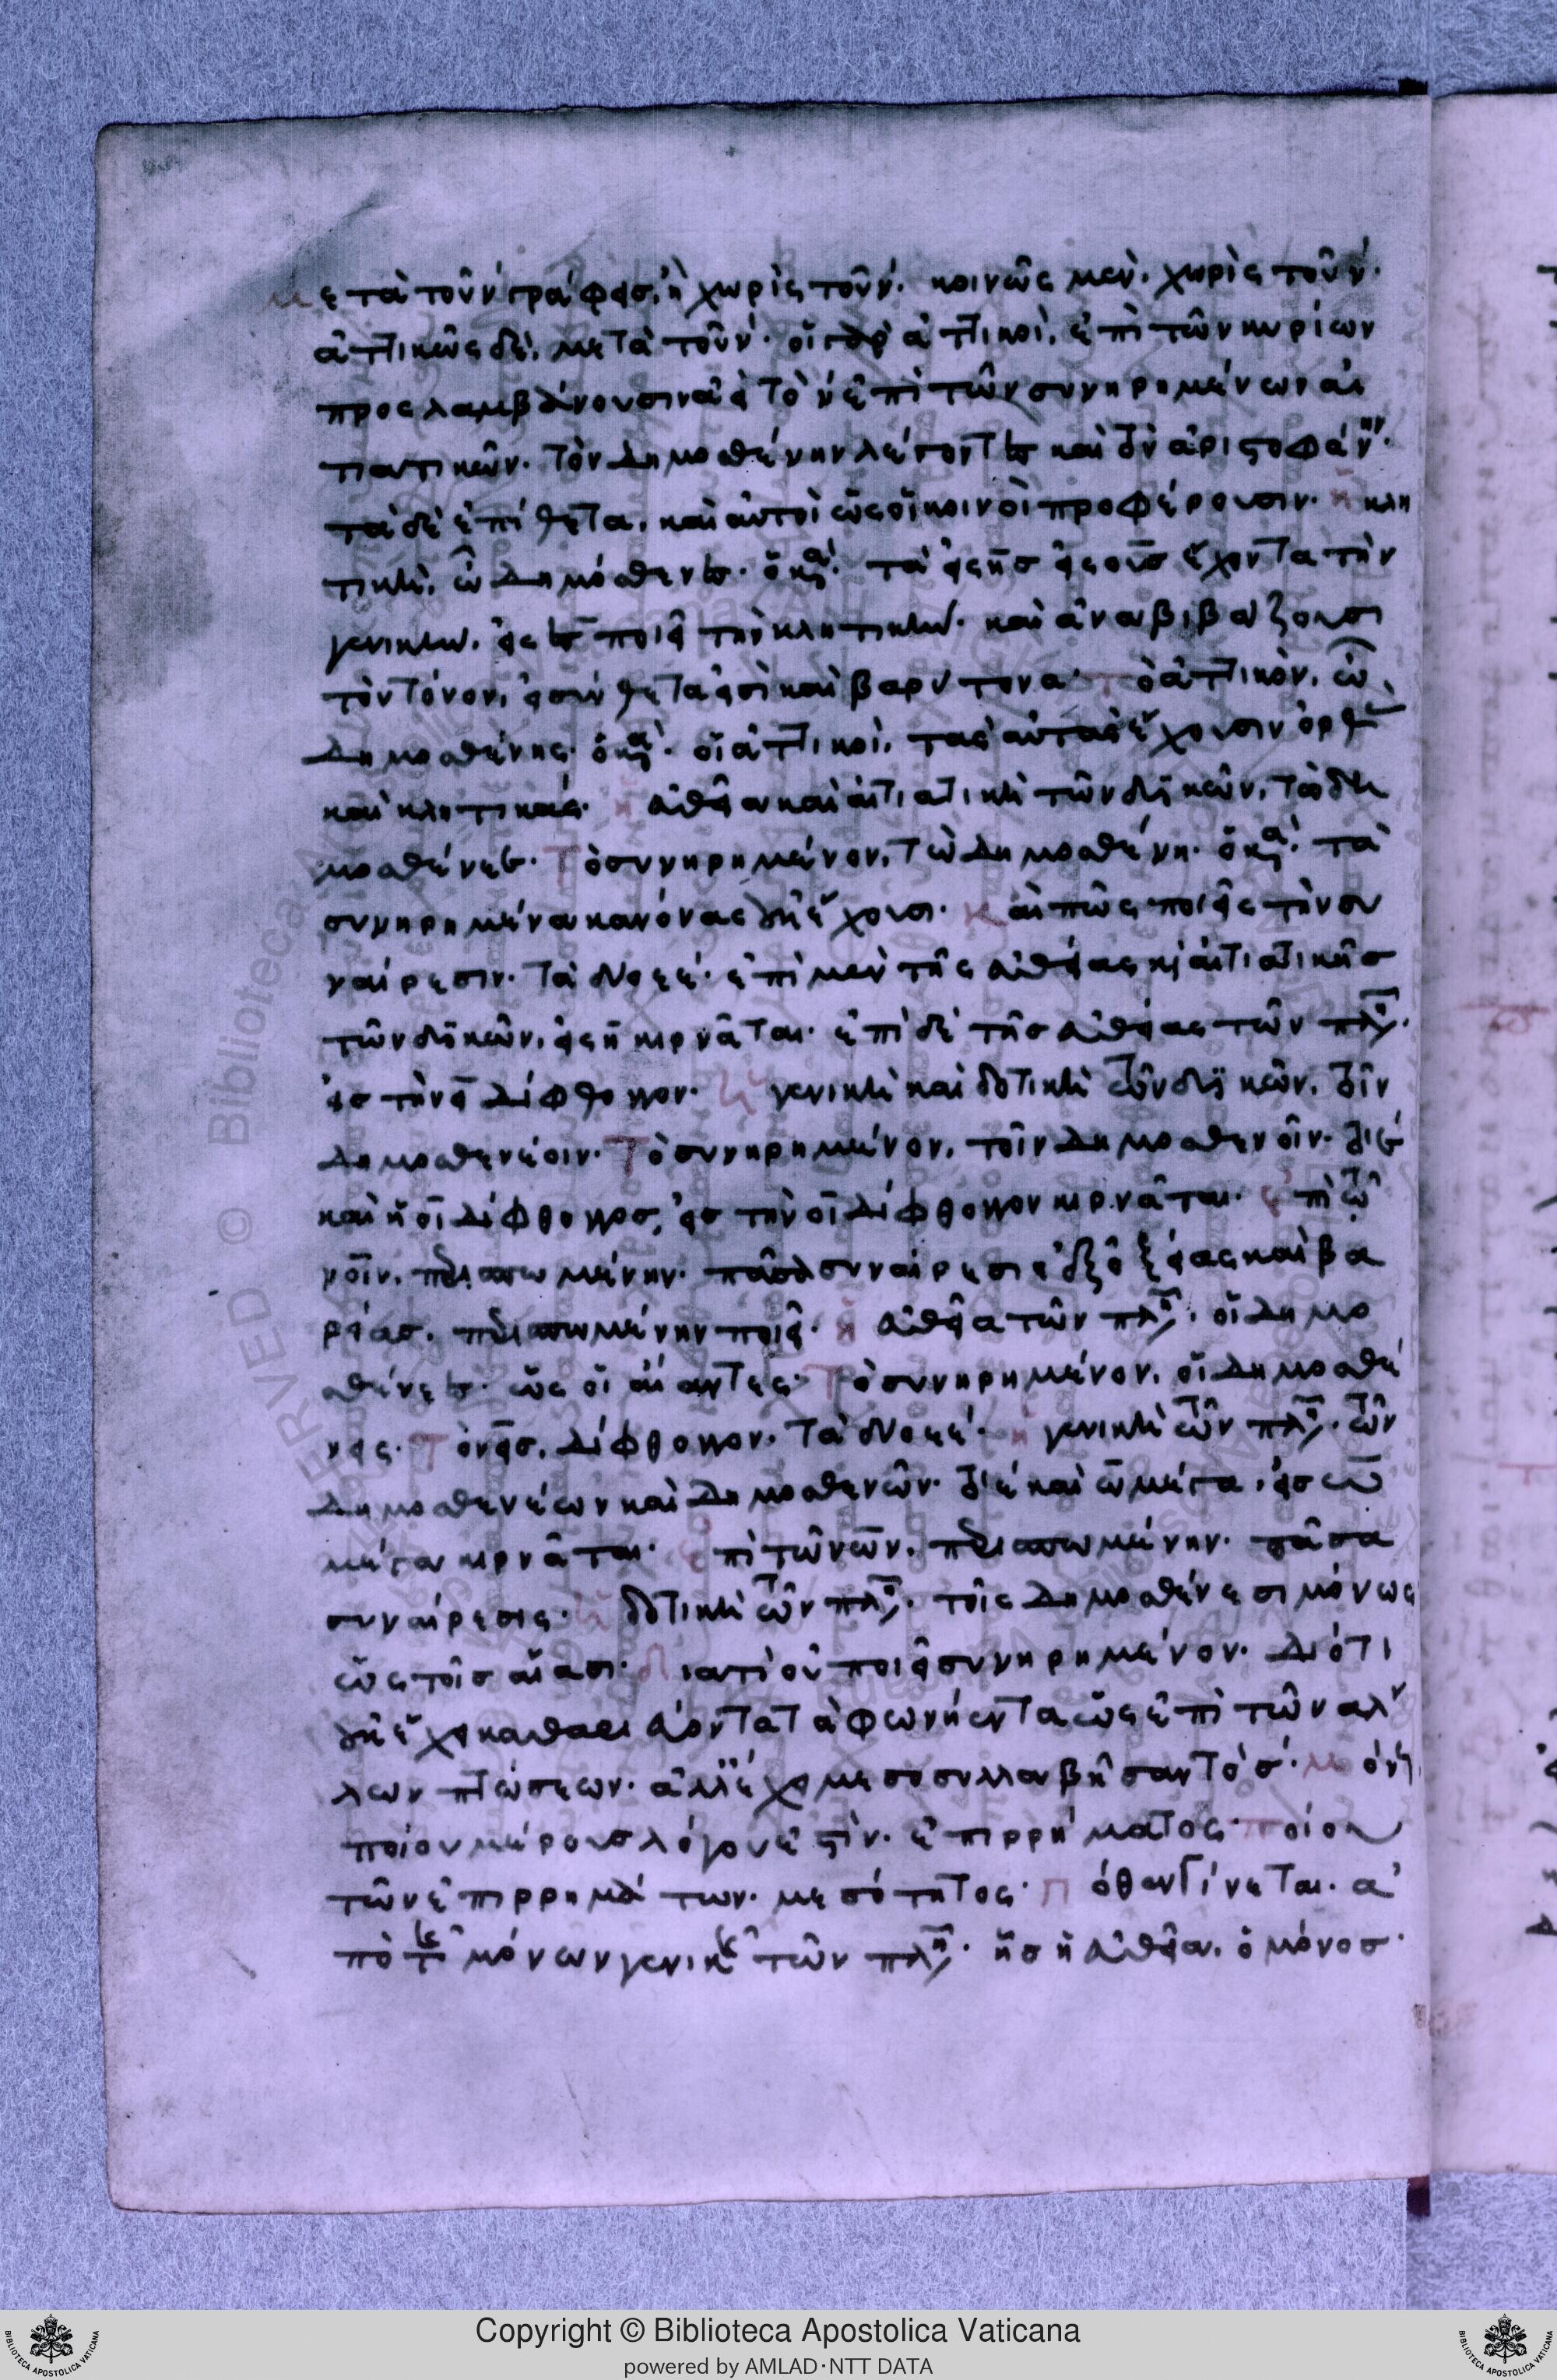 μετὰ τοῦ ν γράφεσι, ἢ χωρὶς τοῦ ν· κοινῶς μὲν, χωρὶς τοῦ ν·
ἀττικῶς δὲ, μετὰ τοῦ ν· οἱ γὰρ ἀττικοὶ, ἐπὶ τῶν κυρίων
προσλαμβάνουσιν ἀεὶ τὸ ν ἐπὶ τῶν συνηρημένων αἰ
τιατικῶν· τὸν Δημοσθένην λέγοντες καὶ τὸν ἀριστοφάνην·
τὰ δὲ ἐπίθετα, καὶ αὐτοὶ ὡς οἱ κοινοὶ προφέρουσιν· ἡ κλη
τικὴ, ὦ Δημόσθενες· ὁ κανών· τὰ εἰς ης εἰς ους ἔχοντα τὴν
γενικὴν, εἰς ες ποιεῖ τὴν κλητικὴν· καὶ ἀναβιβάζουσι
τὸν τόνον, εἰ σύνθετα εἰσὶ καὶ βαρύτονα· τὸ ἀττικὸν, ὦ
Δημοσθένης· ὁ κανών· οἱ ἀττικοὶ, τὰς αὐτὰς ἔχουσιν ὀρθὰς
καὶ κλητικάς· ἡ εὐθεῖα καὶ αἰτιατικὴ τῶν δυϊκῶν, τὼ Δη
μοσθένεε· τὸ συνηρημένον, τὼ Δημοσθένη· ὁ κανών· τὰ
συνηρημένα κανόνας οὐκ ἔχουσι· καὶ πῶς ποιεῖς τὴν συ
ναίρεσιν· τὰ δύο εε· ἐπὶ μὲν τῆς εὐθείας καὶ αἰτιατικῆς
τῶν δυϊκῶν, εἰς η κιρνᾶται· ἐπὶ δὲ τῆς εὐθείας τῶν πλη·
εἰς τὴν ει δίφθογγον· ἡ γενικὴ καὶ δοτικὴ τῶν δυϊκῶν, τοῖν
Δημοσθενέοιν· τὸ συνηρημένον, τοῖν Δημοσθενοῖν· τὸ ε
καὶ ἡ οι δίφθογγος, εἰς τὴν οι δίφθογγον κιρνᾶται· ἐπὶ τῶ
νοῖν, περισπωμένην· πᾶσα συναίρεσις ἐξ ὀξείας καὶ βα
ρείας, περισπωμένην ποιεῖ· ἡ εὐθεῖα τῶν πλη· οἱ Δημο
σθένεες· ὡς οἱ αἴαντες· τὸ συνηρημένον, οἱ Δημοσθέ
νεις· τὸ νεις, δίφθογγον· τὰ δύο εε· ἡ γενικὴ τῶν πλη· τῶν
Δημοσθενέων καὶ Δημοσθενῶν· τὸ ε καὶ ω μέγα, εἰς ω
μέγα κιρνᾶται· ἐπὶ τῶ νῶν, περισπωμένην· πᾶσα
συναίρεσις· ἡ δοτικὴ τῶν πλη· τοῖς Δημοσθένεσι μόνως
ὡς τοῖς αἴασι· διατί οὐ ποιεῖ συνηρημένον· Διότι
οὐκ ἔχει καθαρεύοντα τὰ φωνήεντα ὡς ἐπὶ τῶν ἄλ
λων πτώσεων· ἀλλ' ἔχει μεσοσυλλαβῆσαν τὸ σ· μόνως
ποίου μέρους λόγου ἐστίν· ἐπιρρήματος· ποίου
τῶν ἐπιρρημάτων· μεσότητος· πόθεν γίνεται· ἀ
πὸ τῆς μόνων γενικῆς τῶν πλη· ἧς ἡ εὐθεῖα, ὁ μόνος·
Copyright © Biblioteca Apostolica Vaticana
powered by AMLAD·NTT DATA